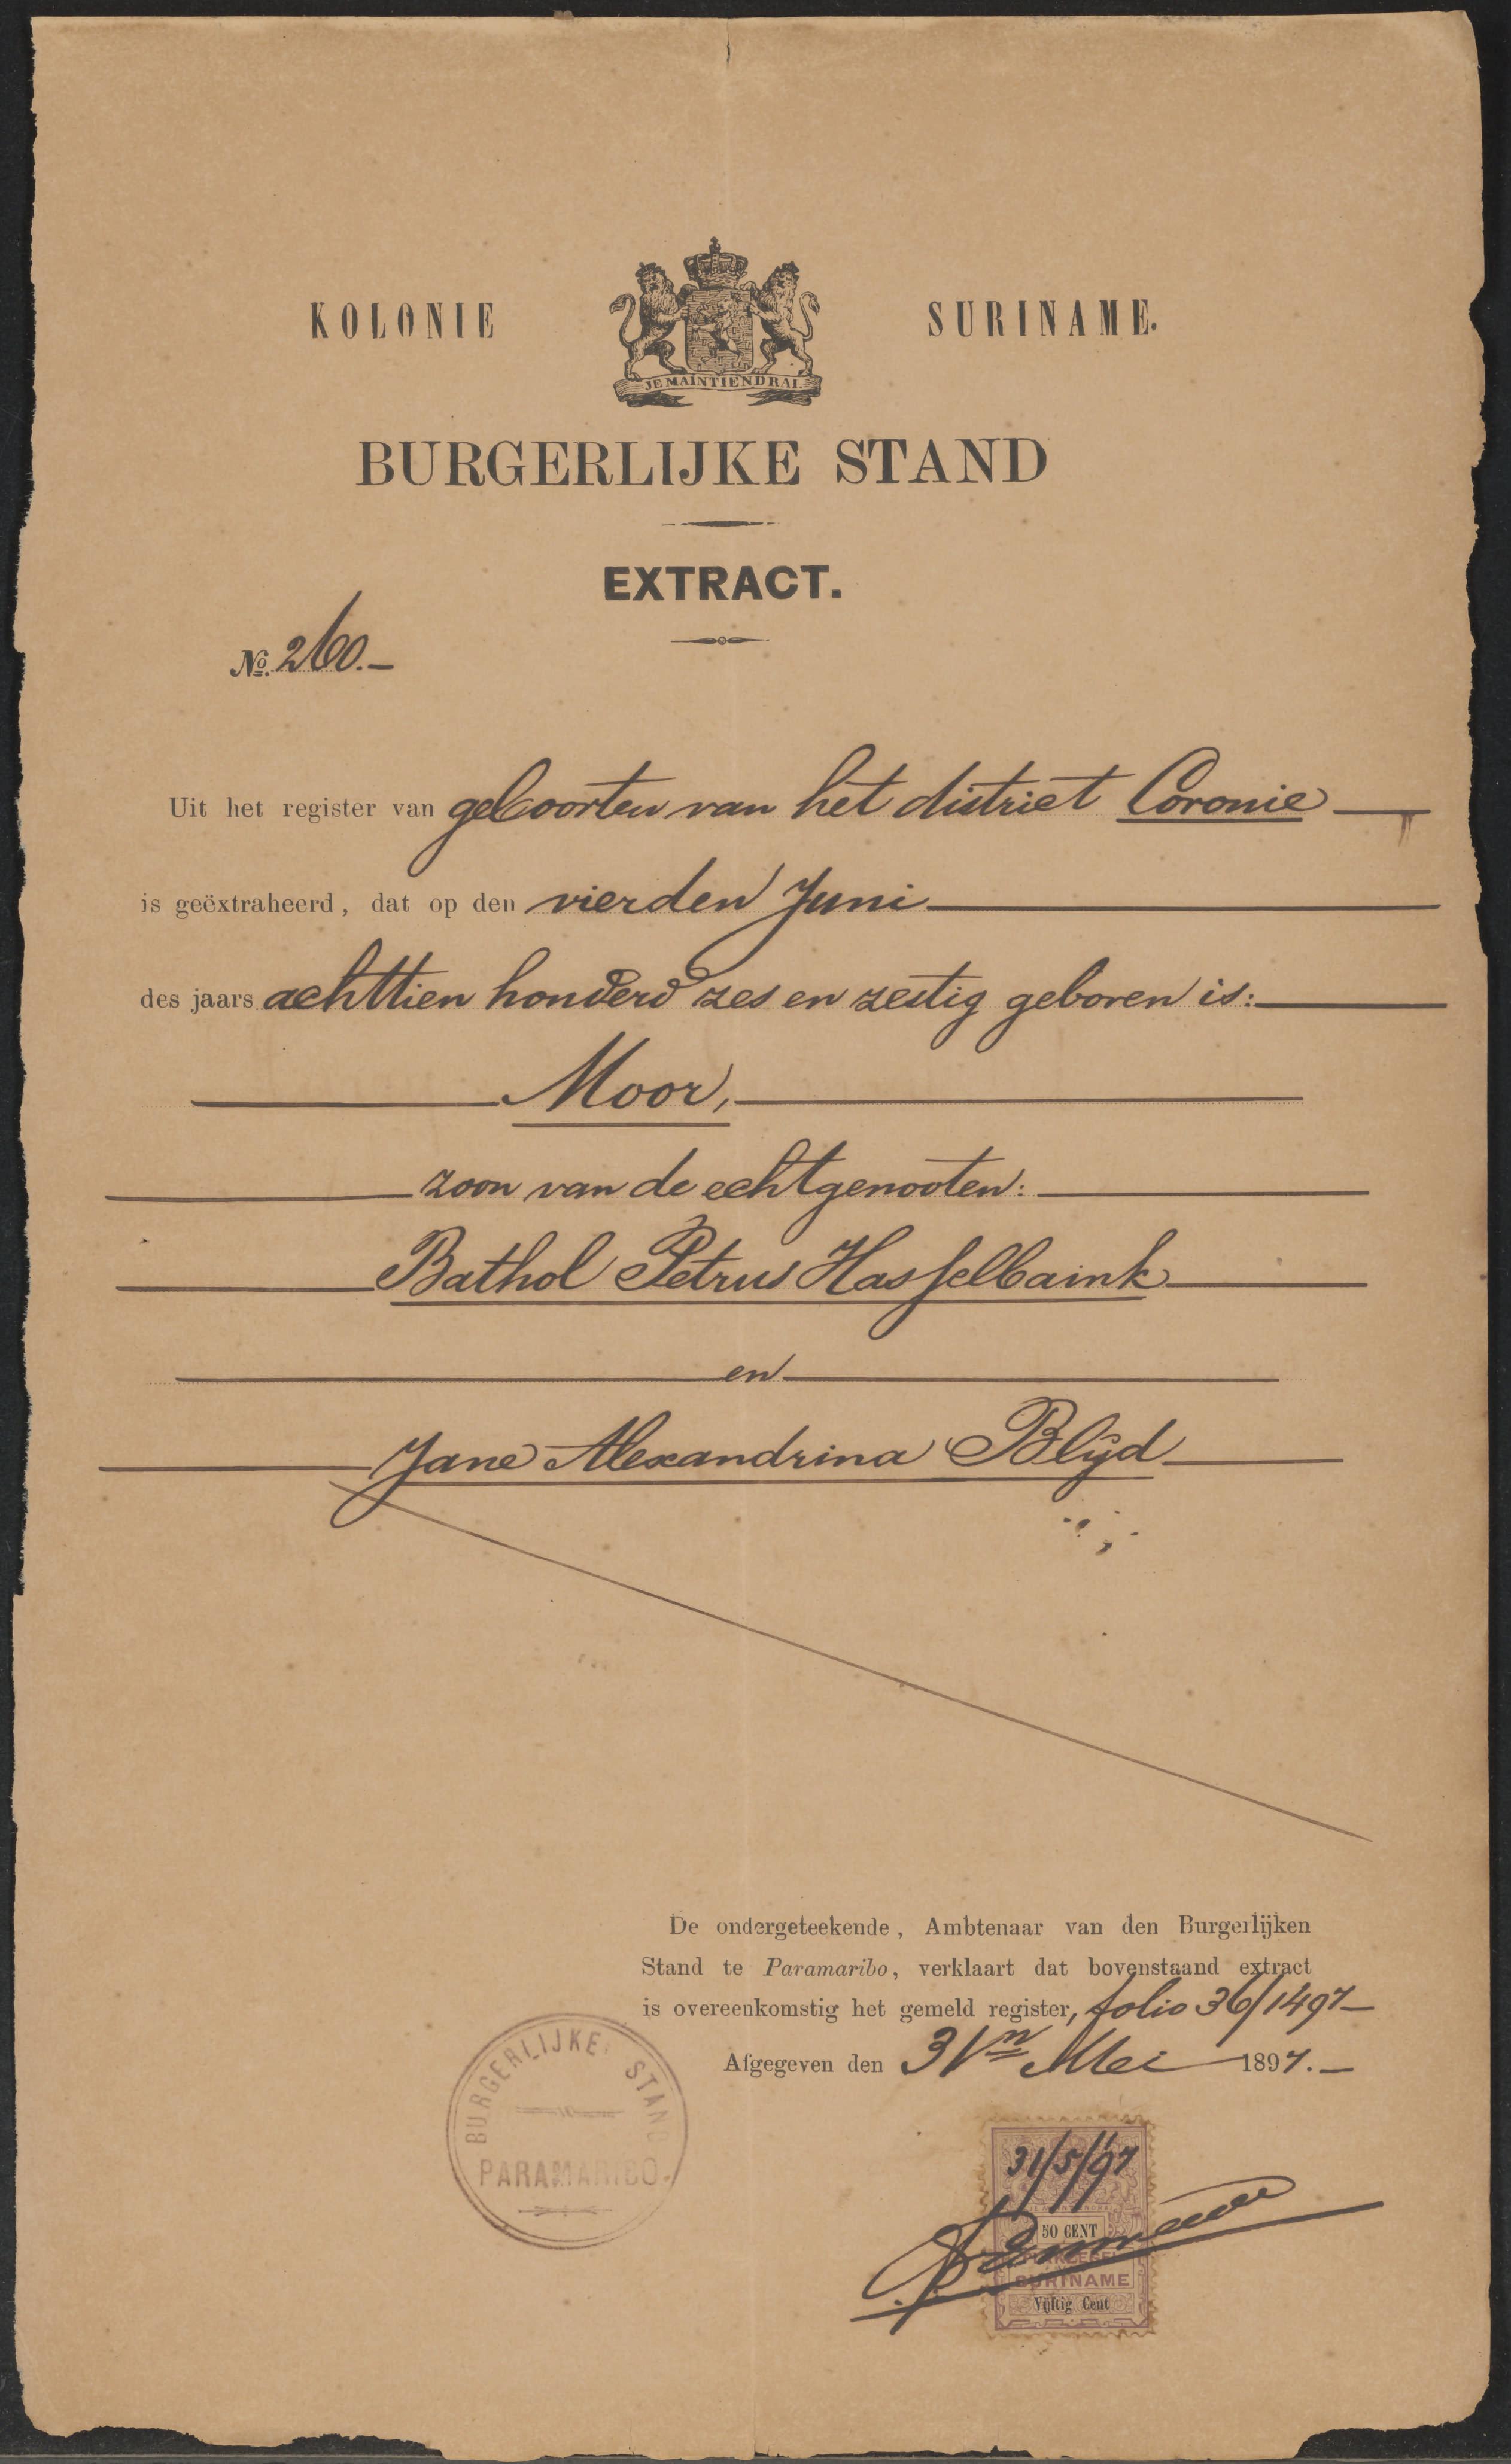 KOLONIE SURINAME.
JE MAINTIENDRAI.
BURGERLIJKE STAND
EXTRACT.
No. 260.–
Uit het register van geboorten van het district Coronie
is geëxtraheerd, dat op den vierden Juni
des jaars achttien honderd zes en zestig geboren is:
Moor,
zoon van de echtgenooten:
Bathol Petrus Hasselbaink
en
Jane Alexandrina Blijd
De ondergeteekende, Ambtenaar van den Burgerlijken
Stand te Paramaribo, verklaart dat bovenstaand extract
is overeenkomstig het gemeld register, folio 36/1497–
Afgegeven den 31n Mei 1897.–
BURGERLIJKE STAND
PARAMARIBO.
31/5/97
50 CENT
SURINAME
Vijftig Cent